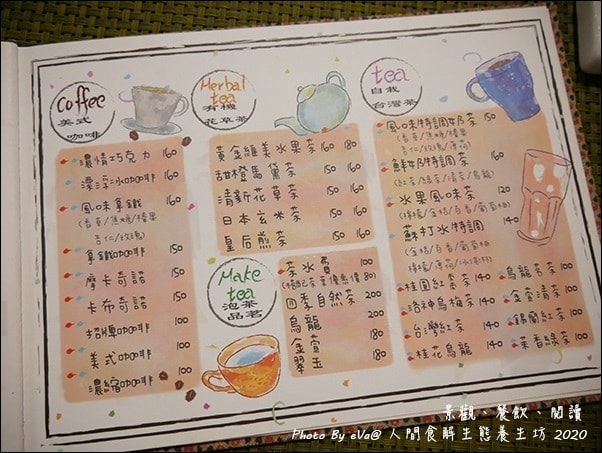 Coffee
美式
咖啡
濃情巧克力 160
漂浮冰咖啡 160
風味拿鐵 160
(香草/焦糖/榛果
杏仁/玫瑰)
拿鐵咖啡 150
摩卡奇諾 150
卡布奇諾 150
招牌咖啡 100
美式咖啡 100
濃縮咖啡 100
Herbal
tea
有機
花草茶
黃金維美水果茶 160 180
甜橙馬黛茶 150 160
清新花草茶 150 160
日本玄米茶 150 160
皇后煎茶 150 160
Make
tea
泡茶
品茗
茶水費 100
(搭配茶葉優惠價80)
四季自然茶 200
烏龍 200
金萱 180
翠玉 180
tea
自栽
台灣茶
風味特調奶茶 150
(香草/焦糖/榛果
杏仁/玫瑰/薄荷)
鮮奶特調茶 160
(紅茶/綠茶/清茶/烏龍)
水果風味茶 120
(檸檬/金桔/百香/葡萄柚)
蘇打水特調 140
(金桔/百香/葡萄柚
檸檬/薄荷/水蜜桃)
桂圓紅棗茶 140 烏龍茗茶 100
洛神烏梅茶 140 金萱清茶 100
台灣紅茶 140 錫蘭紅茶 100
桂花烏龍 140 茉香綠茶 100
景觀、餐飲、閱讀
Photo By eVa@人間食解生態養生坊 2020